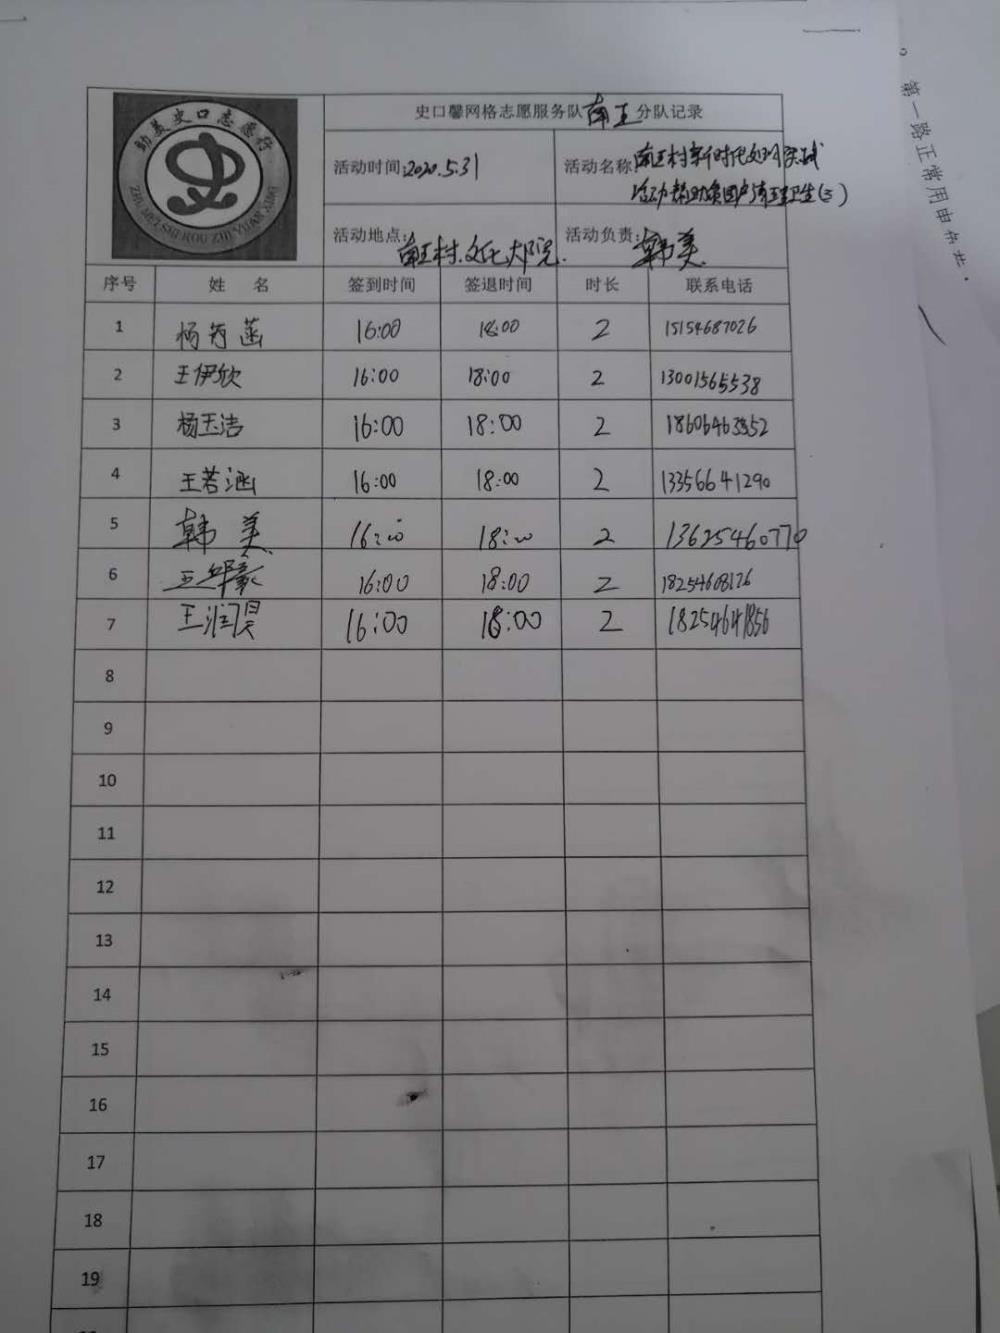 助美史口志愿行
ZHU MEI SHI KOU ZHI YUAN XING
史口馨网格志愿服务队南王分队记录
活动时间:2020.5.31
活动名称:南王村新时代文明实践
活动帮助贫困户清理卫生(三)
活动地点:南王村文化大院.
活动负责:韩美
序号 姓 名 签到时间 签退时间 时长 联系电话
1 杨芳菡 16:00 18:00 2 15154687026
2 王伊欣 16:00 18:00 2 13001565538
3 杨玉洁 16:00 18:00 2 18606463852
4 王若涵 16:00 18:00 2 13356641290
5 韩美 16:00 18:00 2 13625460770
6 王 16:00 18:00 2 18254608126
7 王润昊 16:00 18:00 2 18254641856
8
9
10
11
12
13
14
15
16
17
18
19
第一路正常用由